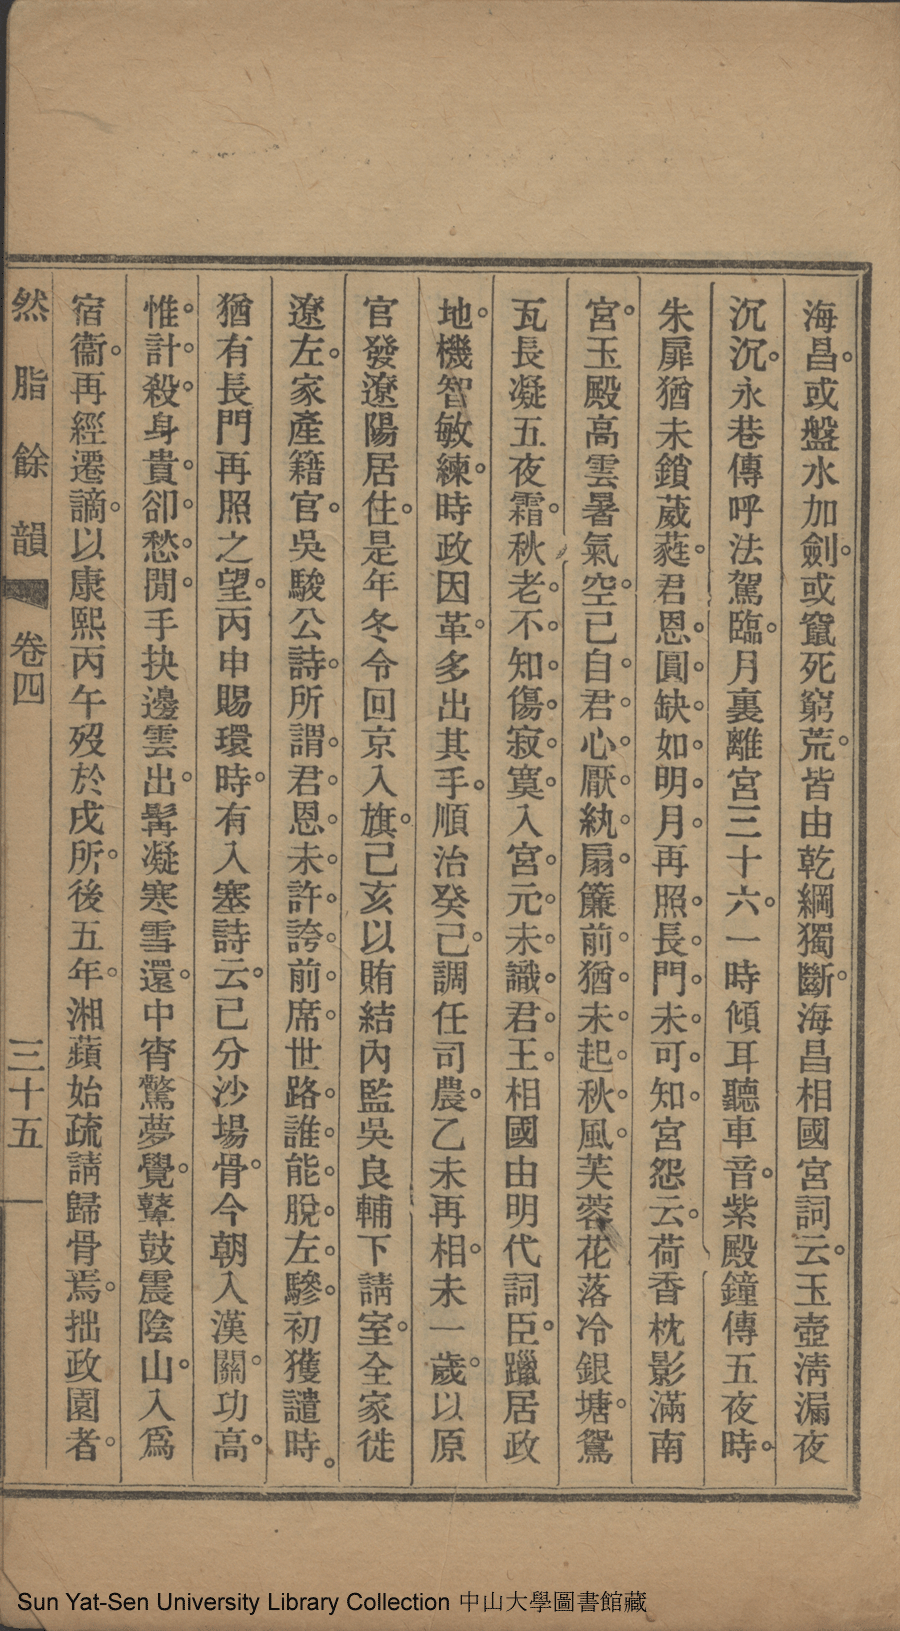 海昌。或盤水加劍。或竄死窮荒。皆由乾綱獨斷。海昌相國宮詞云。玉壺淸漏夜
沉沉。永巷傳呼法駕臨。月裏離宮三十六。一時傾耳聽車音。紫殿鐘傳五夜時。
朱扉猶未鎖葳蕤。君恩。圓。缺。如。明。月。再照。長。門。未。可。知。宮怨云。荷香枕影滿南
宮。玉殿高雲暑氣空。已自。君。心。厭。紈。扇。簾前。猶。未。起。秋。風。芙蓉花落冷銀塘。鴛
瓦長凝五夜霜。秋老。不。知。傷。寂。寞。入宮。元。未。識。君。王。相國由明代詞臣。躐居政
地。機智敏練。時政因革。多出其手。順治癸己。調任司農。乙未再相。未一歲。以原
官發遼陽居住。是年冬令回京入旗。己亥以賄結內監吳良輔下請室。全家徙
遼左。家產籍官。吳駿公詩。所謂。君恩。未。許。誇。前。席。世路。誰。能。脫。左。驂。初獲譴時。
猶有長門再照之望。丙申賜環時。有入塞詩云。已分沙場骨。今朝入漢關。功高。
惟。計。殺。身貴。卻。愁。閒。手抉邊雲出。髯凝寒雪還。中宵驚夢覺。鼙鼓震陰山。入爲
宿衞。再經遷謫。以康熙丙午歿於戍所。後五年。湘蘋始疏請歸骨焉。拙政園者。
然脂餘韻 卷四 三十五
Sun Yat-Sen University Library Collection 中山大學圖書館藏